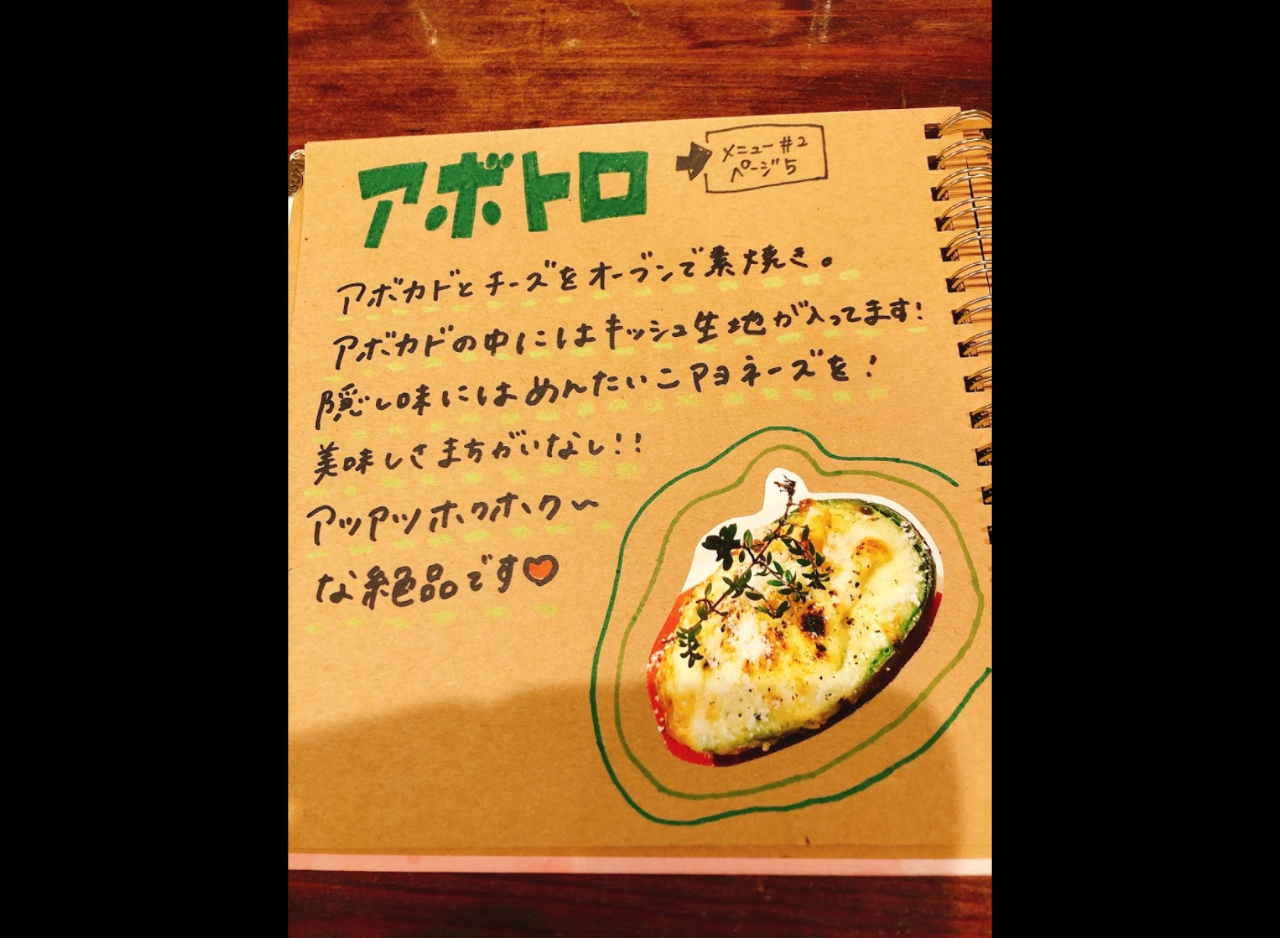 アボトロ
メニュー#2
ページ5
アボカドとチーズをオーブンで素焼き。
アボカドの中にはキッシュ生地が入ってます!
隠し味にはめんたいこマヨネーズを!
美味しさまちがいなし!!
アッツアツホクホク〜
な絶品です♡